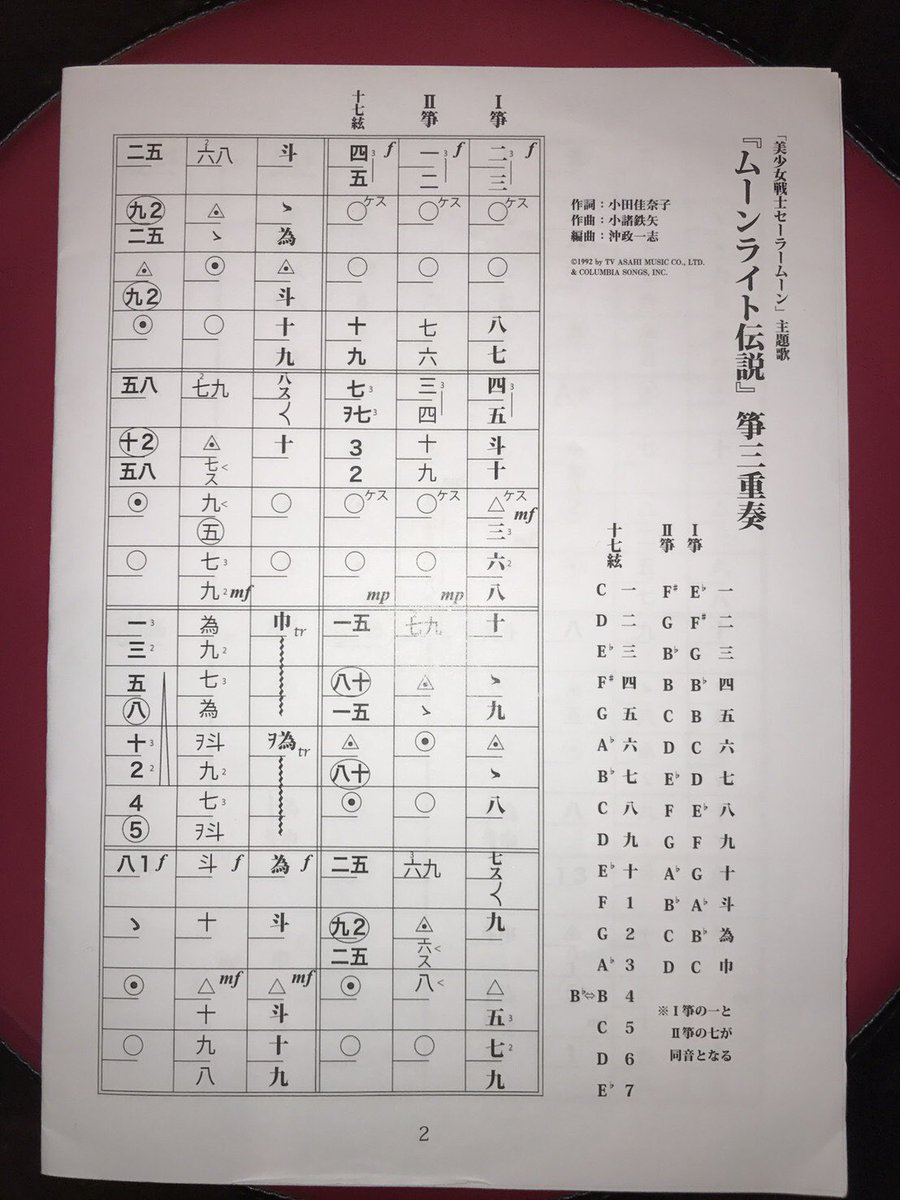 「美少女戦士セーラームーン」主題歌
『ムーンライト伝説』 箏三重奏
作詞：小田佳奈子
作曲：小諸鉄矢
編曲：沖政一志
©1992 by TV ASAHI MUSIC CO., LTD.
& COLUMBIA SONGS, INC.
十七絃 Ⅱ箏 Ⅰ箏
C 一 F♯ E♭ 一
D 二 G F♯ 二
E♭ 三 B♭ G 三
F♯ 四 B B♭ 四
G 五 C B 五
A♭ 六 D C 六
B♭ 七 E♭ D 七
C 八 F E♭ 八
D 九 G F 九
E♭ 十 A♭ G 十
F 1 B♭ A♭ 斗
G 2 C B♭ 為
A♭ 3 D C 巾
B♭⇔B 4
C 5
D 6
E♭ 7
※Ⅰ箏の一と
Ⅱ箏の七が
同音となる
Ⅰ箏
二 3 f 三 ○ ケス ○ 八 七 四 3 五 斗 十 △ ケス mf 三 3 六 2 八 十 ゝ 九 △ ゝ 八 七 ス 〱 九 △ 五 3 七 2 九
Ⅱ箏
一 3 f 二 ○ ケス ○ 七 六 三 3 四 十 九 ○ ケス ○ mp 七九 △ ゝ ⦿ ○ 3 六九 △ 六 < ス 八 < ⦿ ○
十七絃
四 3 f 五 ○ ケス ○ 十 九 七 3 ヲ七 3 3 2 ○ ケス ○ mp 一五 八十 一五 △ 八十 ⦿ 二五 九2 二五 ⦿ ○
斗 ゝ 為 △ 斗 十 九 八 ス 〱 十 ○ ○ 巾 tr ヲ為 tr 為 f 斗 △ mf 斗 十 九
2 六八 △ ゝ ⦿ ○ 2 七九 △ 七 < ス 九 < 五 七 3 九 2 mf 為 九 2 七 3 為 ヲ斗 九 2 七 3 ヲ斗 斗 f 十 △ mf 十 九 八
二五 九2 二五 △ 九2 ⦿ 五八 十2 五八 ⦿ ○ 一 3 三 2 五 八 十 3 2 2 4 5 八1 f ゝ ⦿ ○
2